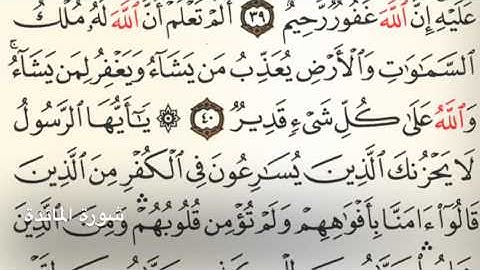 عَلَيْهِ إِنَّ ٱللَّهَ غَفُورٌ رَّحِيمٌ ٣٩ أَلَمْ تَعْلَمْ أَنَّ ٱللَّهَ لَهُۥ مُلْكُ
ٱلسَّمَٰوَٰتِ وَٱلْأَرْضِ يُعَذِّبُ مَن يَشَآءُ وَيَغْفِرُ لِمَن يَشَآءُ ۗ
وَٱللَّهُ عَلَىٰ كُلِّ شَىْءٍ قَدِيرٌ ٤٠ ۞ يَٰٓأَيُّهَا ٱلرَّسُولُ
لَا يَحْزُنكَ ٱلَّذِينَ يُسَٰرِعُونَ فِى ٱلْكُفْرِ مِنَ ٱلَّذِينَ
قَالُوٓا۟ ءَامَنَّا بِأَفْوَٰهِهِمْ وَلَمْ تُؤْمِن قُلُوبُهُمْ ۛ وَمِنَ ٱلَّذِينَ
سورة المائدة